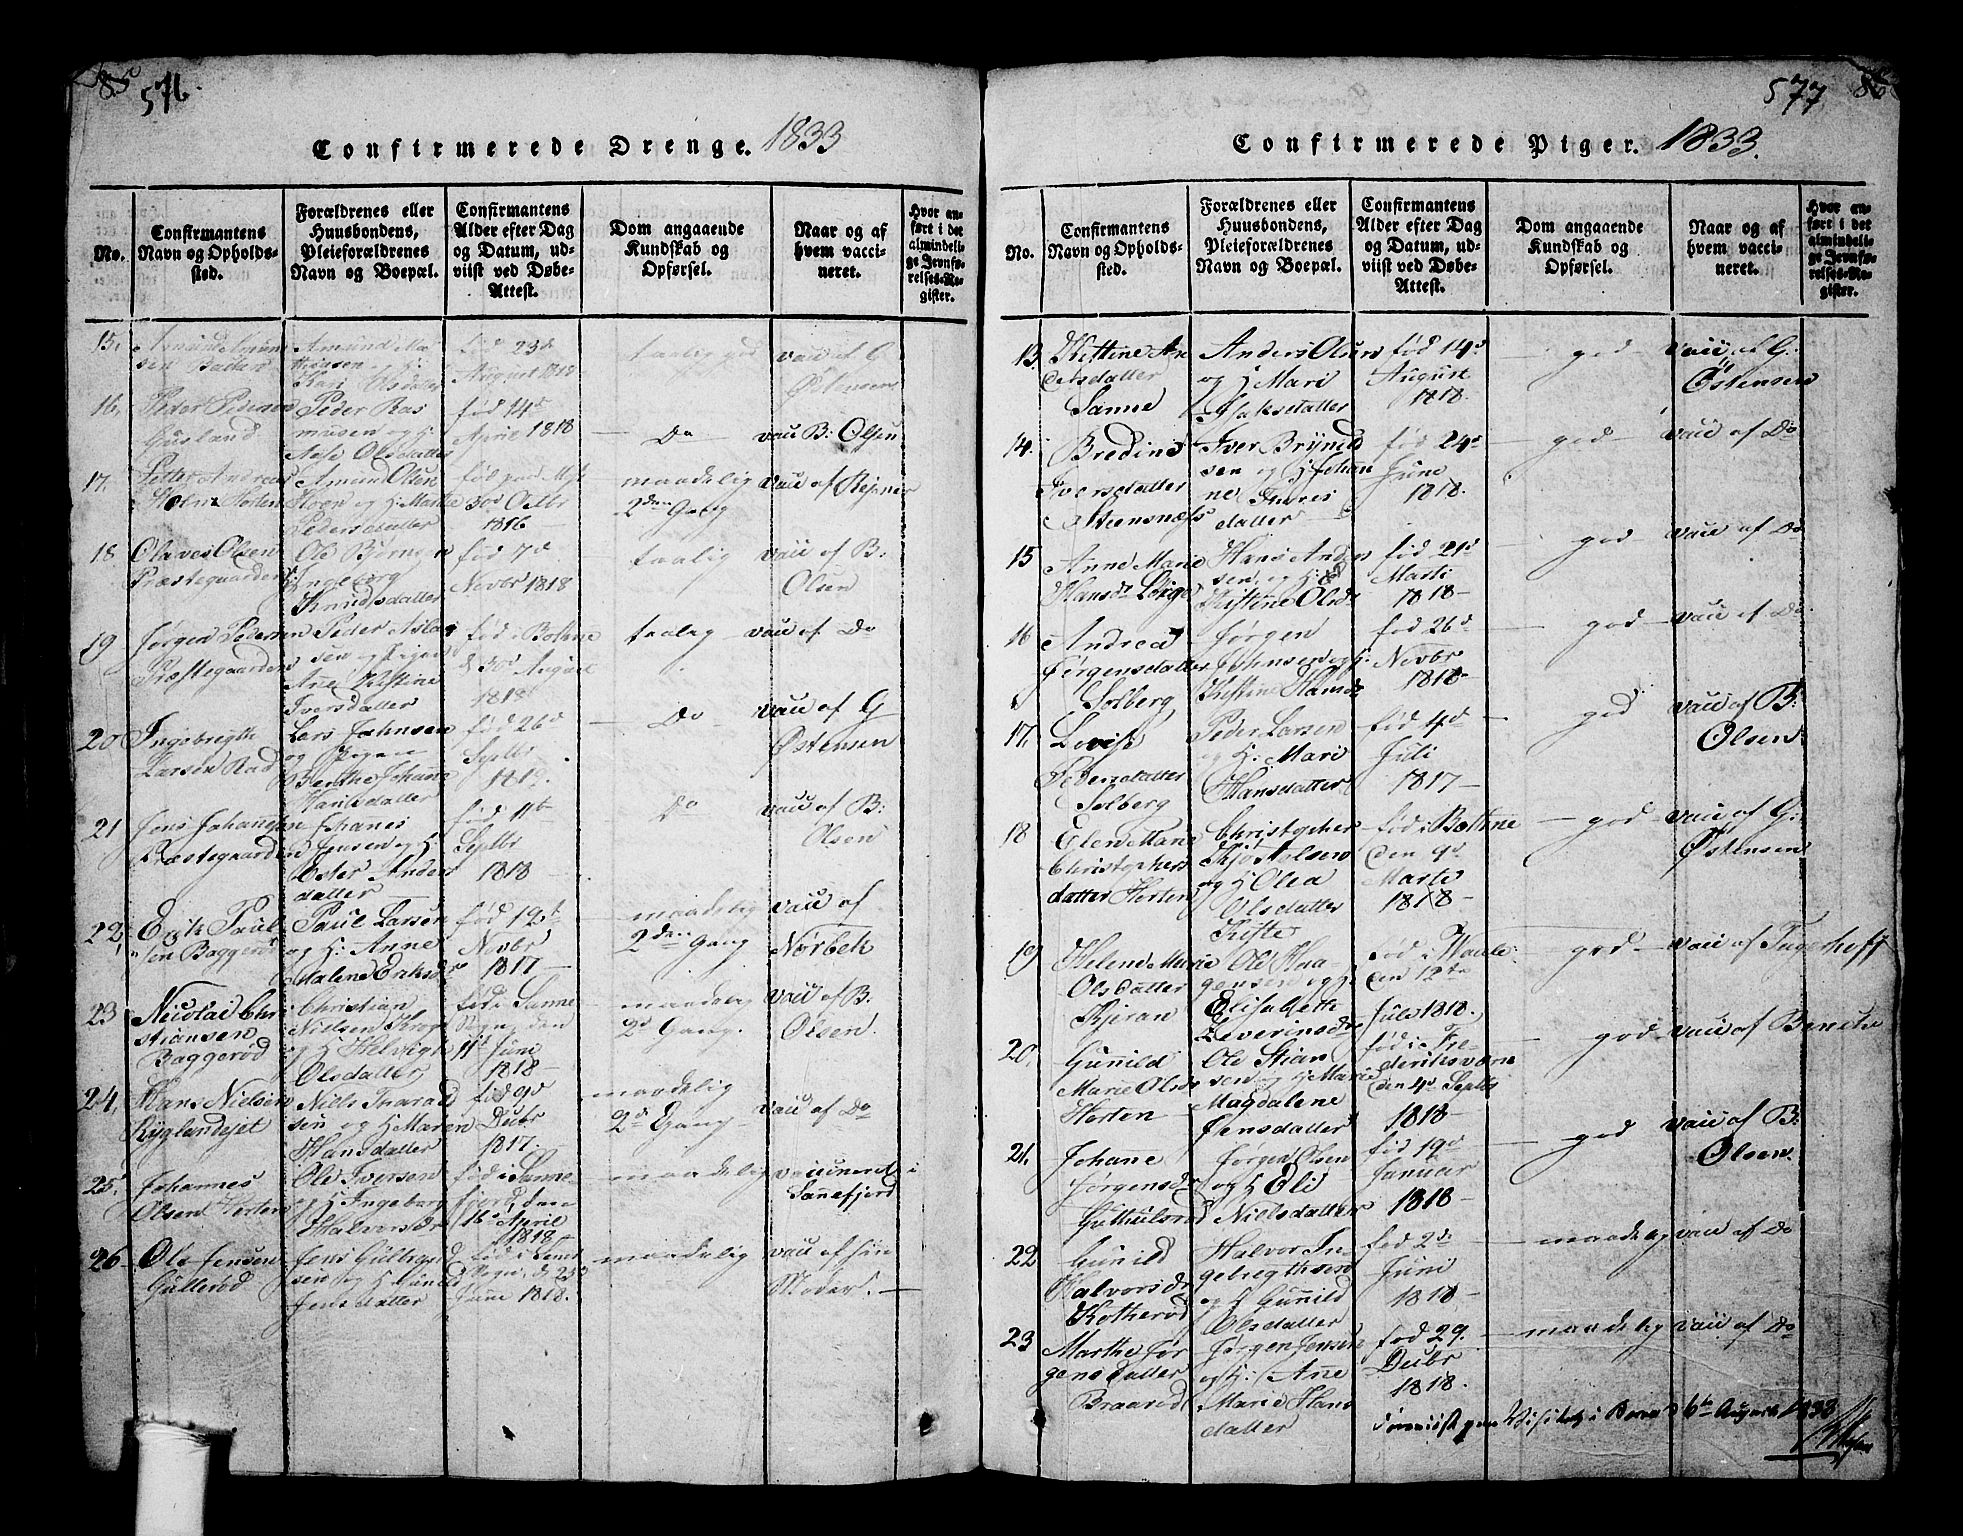 85 576.
Confirmerede Drenge. 1833
No.
Confirmantens Navn og Opholds-sted.
Forældrenes eller Huusbondens, Pleieforældrenes Navn og Boepæl.
Confirmantens Alder efter Dag og Datum, ud-viist ved Døbe-Attest.
Dom angaaende Kundskab og Opførsel.
Naar og af hvem vacci-neret.
Hvor an-ført i det almindeli-ge Jevnfø-relses-Re-gister.
15. Amund Amun
sen Bakken
Amund Ma
thisen
Kari Olsdatter
fød 23d
August 1818
taalig god
vac af G
Østensen
16. Peder Pedersen
Gusland
Peder Ras
musen og H.
Aase Olsdatter
fød 14d
April 1818
Do
vac B: Olsen
17. Petter Andreas
Holm Horten
Amund Olsen
Hoen og H Marthe
Pedersdatter
30d Octbr
1816
maadelig
2den Gang
vac af
18. Olaves Olsen
Præstegaarden
Ole Børnsen
Ingeborg
Knudsdatter
fød 7d
Novbr 1818
taalig
vac af B:
Olsen
19 Jørgen Pedersen
Præstegaarden
Peder Aslag
sen og Pigen
Ane Kistine
Iversdatter
fød i Bottne
d 30d August
1818
taalig
vac af Do
20 Ingebregth
Larsen Rad
Lars Johnsen
og Pigen
Berthe Johanne
Hansdatter
fød 26d
Septbr
1818.
Do
vac af G
Østensen
21 Jens Johanesen
Præstegaarden
Johanes
Jensen og H.
Ester Anders
datter
fød 11te
Septbr
1818
Do
vac af B:
Olsen
22. Erik Paul
sen Baggerød
Paul Larsen
og H. Anne
Malene Eriksdr
fød 12t
Novbr
1817
maadelig
2den Gang
vac af
Nørbek
23 Nicolai Chri
stiansen
Baggerød
Christian
Nielsen Krog
og H Helvigh
Olsdatter
fød i Sanne
Sogn, den
11t Juni
1818
maadelig
2d Gang.
vac af B:
Olsen.
24. Hans Nielsen
Ryglandejet
Niels Tharald
sen og H Maren
Hansdatter
fød 9d
Decbr
1817.
maadelig
2d Gang
vac af Do
25. Johannes
Olsen Horten
Ole Iversen
og H Ingeborg
Halvorsdr
fød i Sanne
fjord, den
16d April
1818
maadelig
vaccineret i
Sanefjord
26 Ole Jensen
Gullerød
Jens Gulbrand
sen og H Gunild
Jensdatter
Sogn, d. 23d
Juni 1818.
maadelig
vac af sin
Moder.
577 86
Confirmerede Piger. 1833.
No.
Confirmantens Navn og Opholds-sted.
Forældrenes eller Huusbondens, Pleieforældrenes Navn og Boepæl.
Confirmantens Alder efter Dag og Datum, ud-viist ved Døbe-Attest.
Dom angaaende Kundskab og Opførsel.
Naar og af hvem vacci-neret.
Hvor an-ført i det almindeli-ge Jevnfø-relses-Re-gister.
13 Kettine An
dersdatter
Sanne
Anders Olsen
og H Mari
Isaksdatter
fød 14d
August
1818.
god
vac af G:
Østensen
14. Bredine
Iversdatter
Steensnæs
Iver Brynild
sen og H Johan
ne Thores
datter
fød 24d
Juni
1818.
god
vac af Do
15 Anne Marie
Hansdr Løvige
Hans Ander
sen, og H:
Kistine Olsdr
fød 21d
Marti
1818
god
vac af Do
16 Andrea
Jørgensdatter
Solberg
Jørgen
Johnsen og H:
Kistine Hansdr
fød 26d
Novbr
1818
god
vac af Do
17. Lovise
Pedersdatter
Solberg
Peder Larsen
og H: Mari
Hansdatter
fød 4d
Juli
1817
god
vac af B:
Olsen
18 Elen Marie
Christophers
datter Horten
Christopher
Kjøstelsen
og H Olea
Olsdatter
fød i Bottne
den 9d
Marti
1818
god
vac af G:
Østensen
19 Helene Marie
Olsdatter
Kjeran
Ole Haa
gensen og H.
Elisabeth
Severinsdr
fød i Waale
den 12te
Juli 1818.
god
vac af Fugerhoff
20. Gunild
Marie Olsdr
Horten
Ole Stian
sen og H Marie
Magdalene
Jensdatter
fød i Fre
deriksværn
den 4d Septbr
1818
god
vac af
21. Johane
Jørgensdr
Jørgen Olsen
og H Eli
Nielsdatter
fød 19d
Januar
1818
god
vac af B:
Olsen.
22 Gunild
Halvorsdr
Kotherød
Halvor In
gebregthsen
og H Gunild
Olsdatter
fød 2d
Juni
1818
maadelig
vac af Do
23 Marthe Jør
gensdatter
Braarød
Jørgen Jensen
og H. Ane
Marie Hans
datter
fød 29.
Decbr
1818.
maadelig
vac af Do
6te August 1833